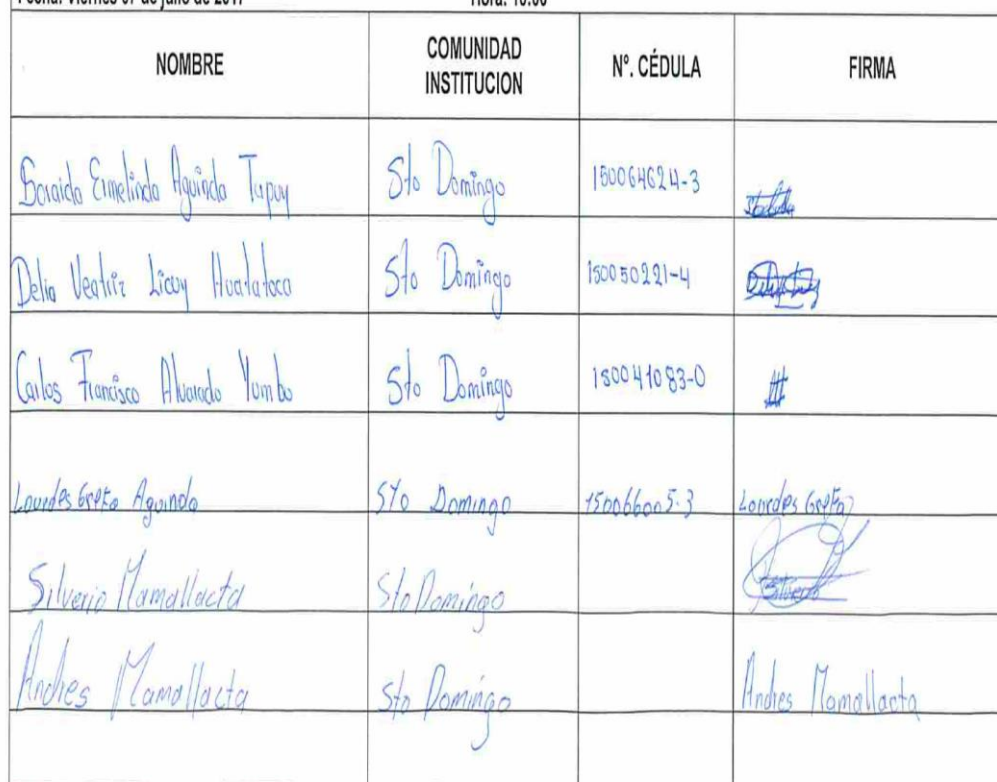 Fecha: Viernes 07 de julio de 2017 Hora: 10:00
NOMBRE COMUNIDAD INSTITUCION Nº. CÉDULA FIRMA
Soraida Ermelinda Aguinda Tapuy Sto Domingo 150064624-3
Delia Veatriz Licuy Huatatoca Sto Domingo 150050221-4
Carlos Francisco Alvarado Yumbo Sto Domingo 150041083-0
Lourdes Grefa Aguinda Sto Domingo 150066005-3 Lourdes Grefa
Silverio Mamallacta Sto Domingo Silverio
Andres Mamallacta Sto Domingo Andres Mamallacta